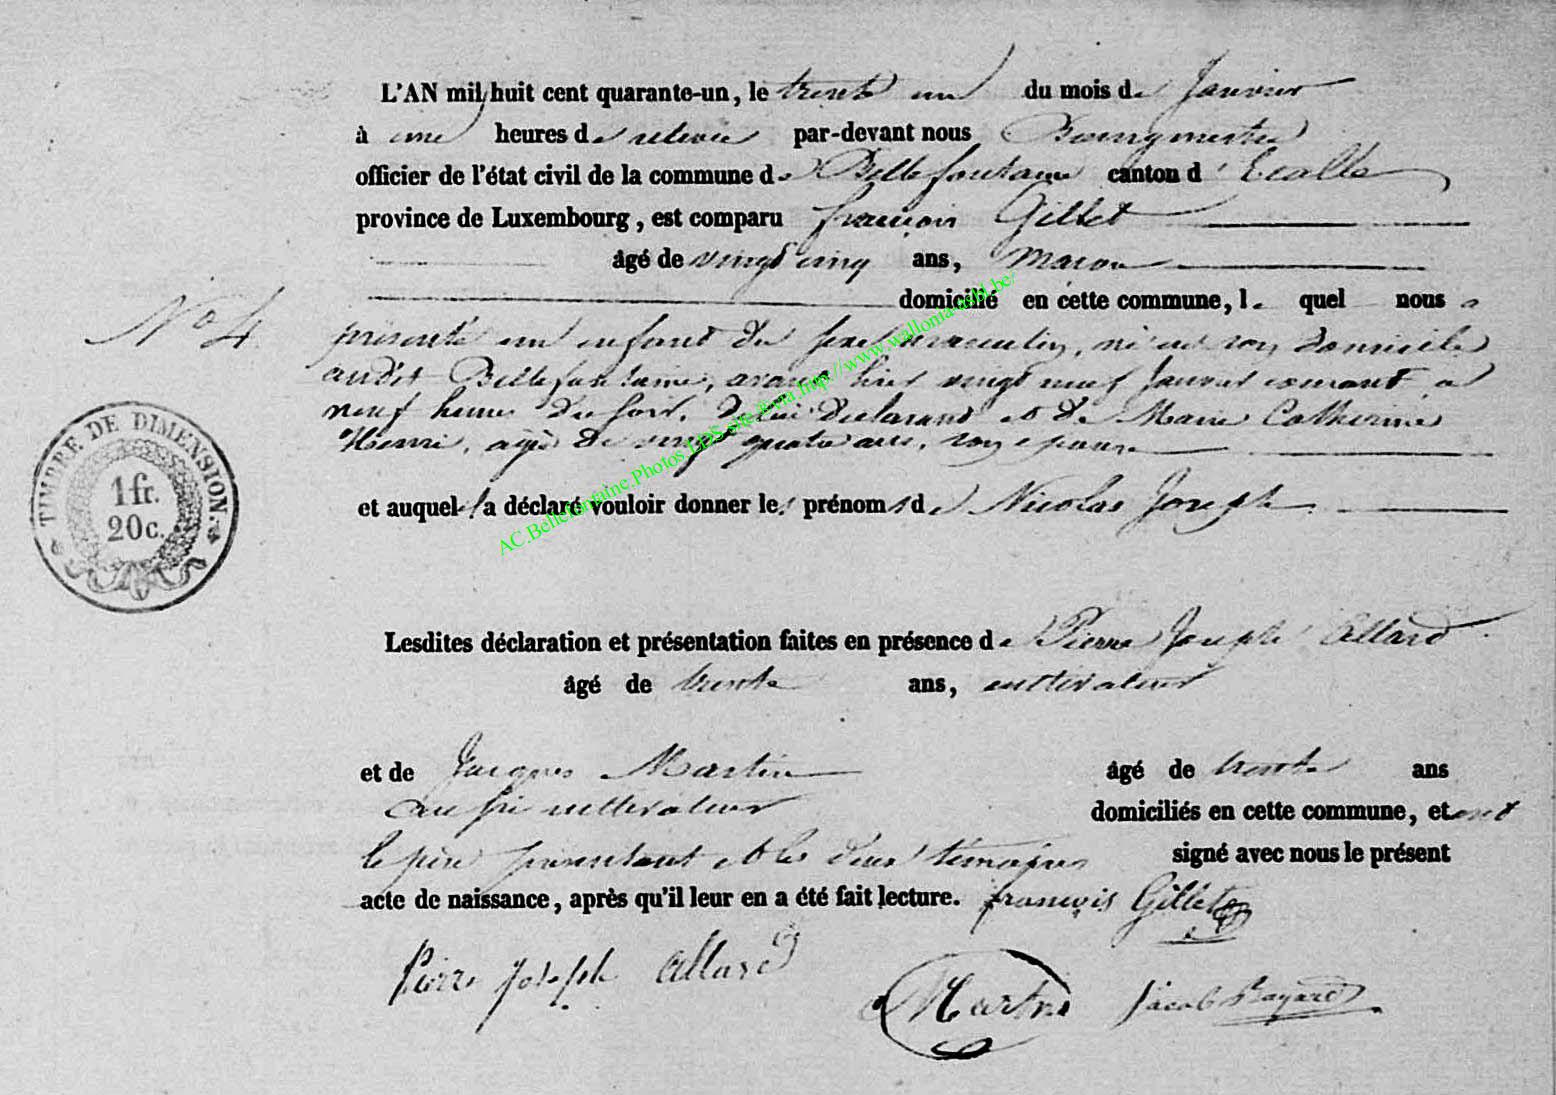 L'AN mil huit cent quarante-un, le trente un du mois de Janvier
à une heures de relevée par-devant nous Bourgmestre
officier de l'état civil de la commune de Bellefontaine canton d'Etalle
province de Luxembourg, est comparu françois Gillet
âgé de vingt cinq ans, Maçon
domicilié en cette commune, lequel nous a
No 4.
présenté un enfant du sexe masculin, né en son domicile
audit Bellefontaine, avant hier vingt neuf Janvier courant, à
neuf heures du soir, de lui Déclarant et de Marie Catherine
Henri, agée de vingt quatre ans, son epouse
et auquel il a déclaré vouloir donner les prénoms de Nicolas Joseph.
TIMBRE DE DIMENSION
1 fr.
20 c.
AC.Bellefontaine.Photos LDS site via http://www.wallonia-asbl.be/
Lesdites déclaration et présentation faites en présence de Pierre Joseph Allard
âgé de trente ans, cultivateur
et de Jacques Martin âgé de trente ans
aussi cultivateur domiciliés en cette commune, et ont
le père présentant et les deux témoins signé avec nous le présent
acte de naissance, après qu'il leur en a été fait lecture. françois Gillet
Pierre Joseph Allard
Martin Jacob Bayard